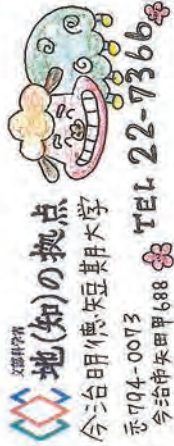 文部科学省
地(知)の拠点
今治明徳短期大学
〒794-0073
今治市矢田甲688 TEL 22-7366